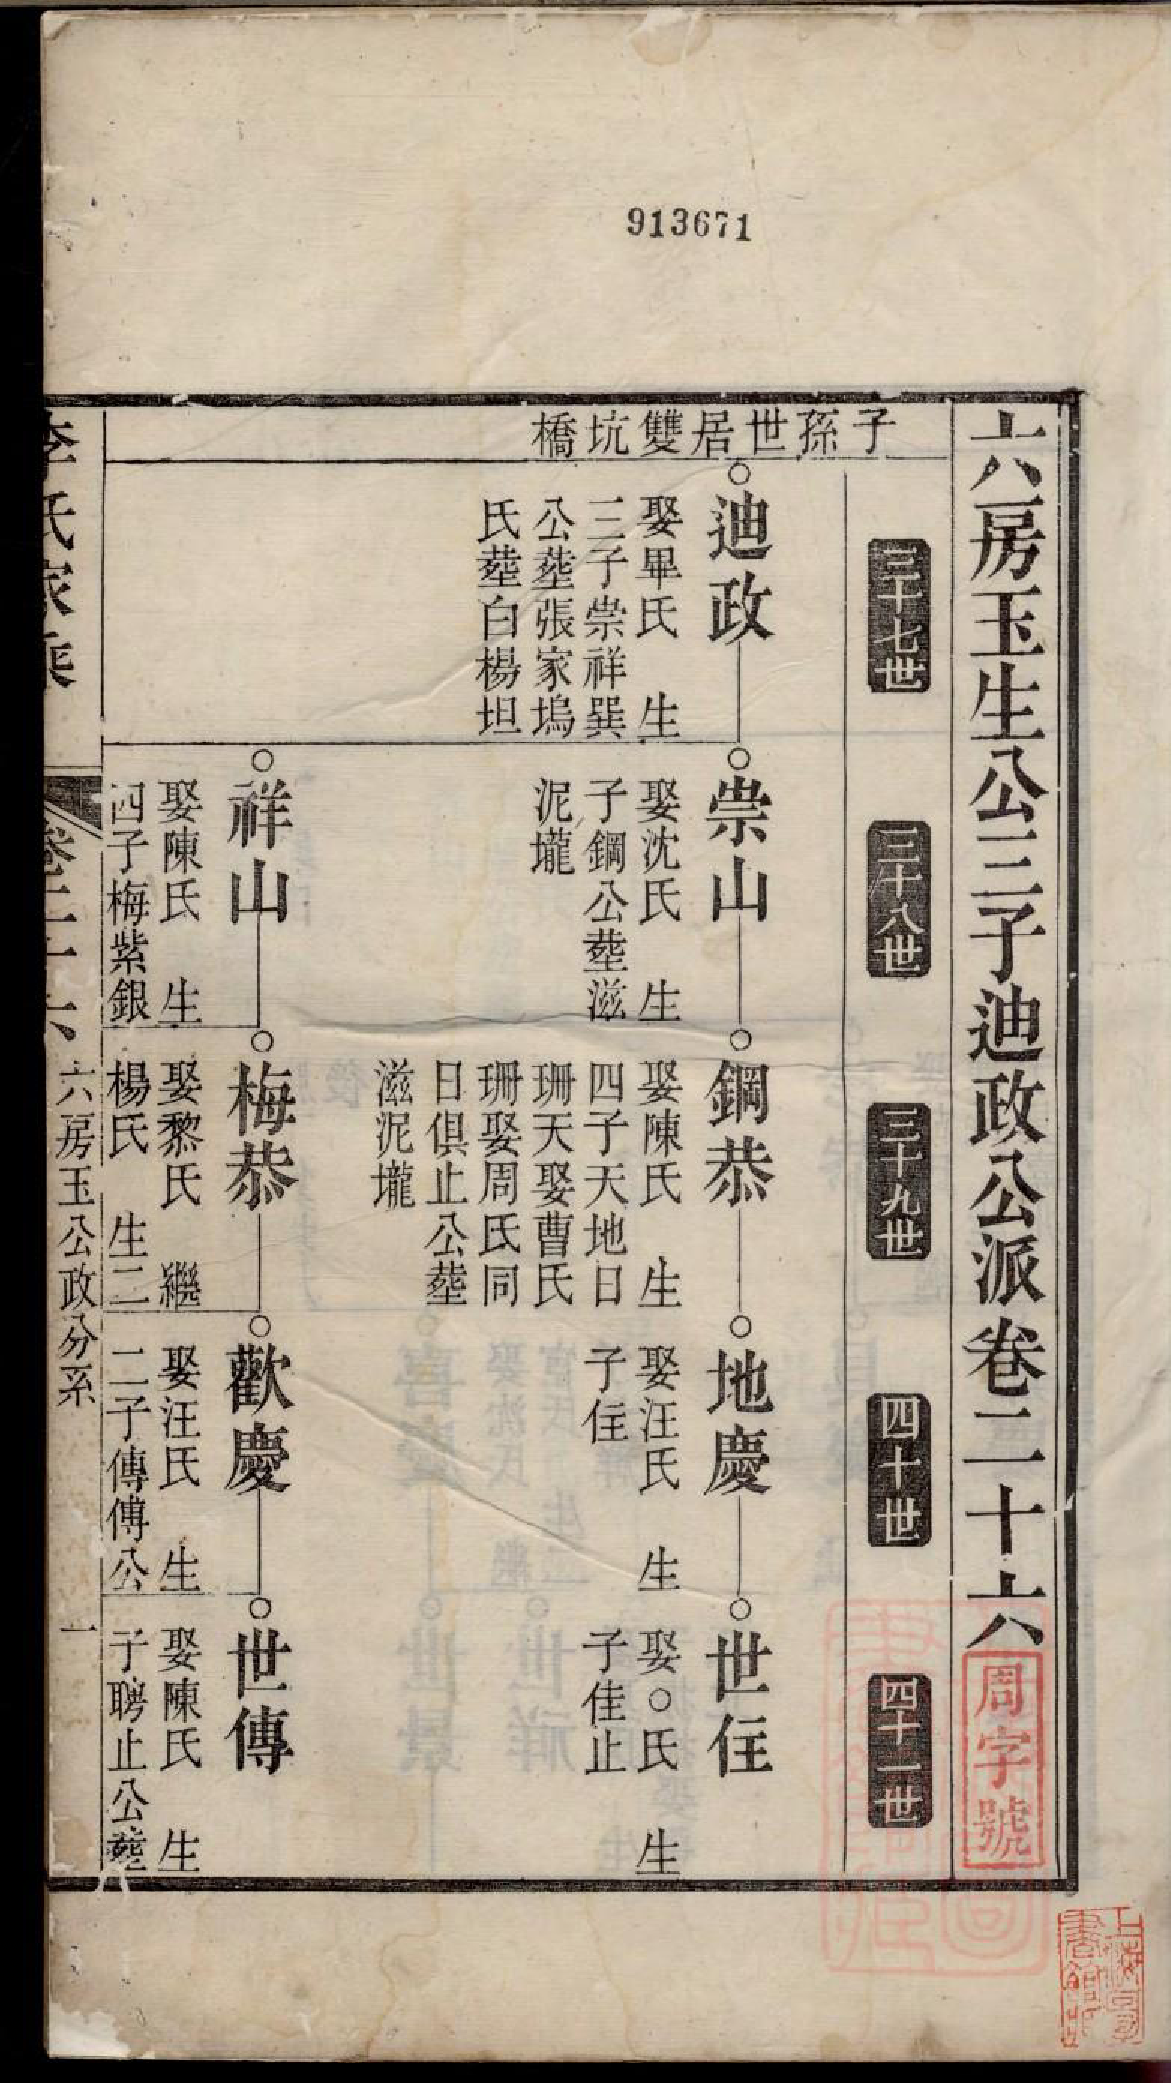 913671
六房玉生公三子迪政公派卷二十六
周字號
子孫世居雙坑橋
三十七世
三十八世
三十九世
四十世
四十一世
迪政
娶畢氏 生
三子崇祥巽
公塟張家塢
氏塟白楊坦
崇山
娶沈氏 生
子鋼公塟滋
泥壠
鋼恭
娶陳氏 生
四子天地日
珊天娶曹氏
珊娶周氏同
日俱止公塟
滋泥壠
地慶
娶汪氏 生
子住
世住
娶○氏 生
子佳止
祥山
娶陳氏 生
四子梅紫銀
梅恭
娶黎氏 繼
楊氏 生二
歡慶
娶汪氏 生
二子傳傳公
世傳
娶陳氏 生
子聘止公塟
李氏家乘
卷二十六
六房玉公政分系
一
上海圖書館藏